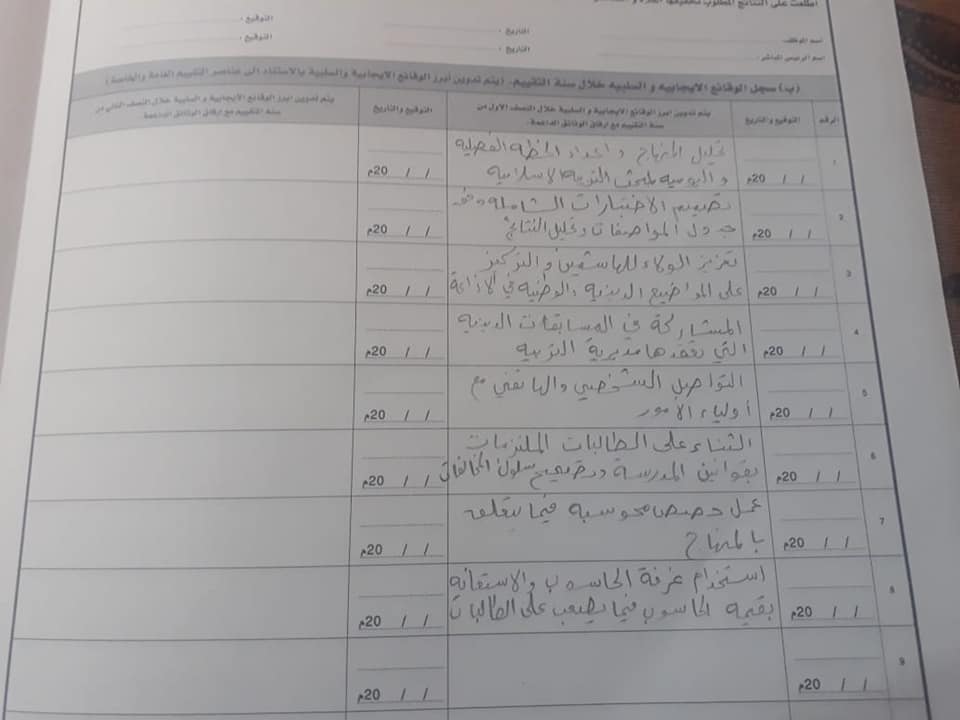 اطلعت على النتائج المطلوب تحقيقها
اسم الموظف: التاريخ: التوقيع:
اسم الرئيس المباشر: التاريخ: التوقيع:
(ب) سجل الوقائع الايجابية و السلبية خلال سنة التقييم. (يتم تدوين ابرز الوقائع الايجابية والسلبية بالاستناد الى عناصر التقييم العامة والخاصة)
الرقم التوقيع والتاريخ يتم تدوين ابرز الوقائع الايجابية و السلبية خلال النصف الاول من التوقيع والتاريخ يتم تدوين ابرز الوقائع الايجابية و السلبية خلال النصف الثاني من
سنة التقييم مع ارفاق الوثائق الداعمة. سنة التقييم مع ارفاق الوثائق الداعمة.
1 تحليل المنهاج و اعداد الخطة الفصلية
/ / 20م و اليومية لمبحث التربية الاسلامية / / 20م
2 تصميم الاختبارات الشاملة وفق
/ / 20م جدول المواصفات وتحليل النتائج / / 20م
3 تعزيز الولاء للهاشميين و التركيز
/ / 20م على المواضيع الدينية والوطنية في الاذاعة / / 20م
4 المشاركة في المسابقات الدينية
/ / 20م التي تعقدها مديرية التربية / / 20م
5 التواصل الشخصي والهاتفي مع
/ / 20م أولياء الأمور / / 20م
6 الثناء على الطالبات الملتزمات
/ / 20م بقوانين المدرسة وتصحيح سلوك المخالفات / / 20م
7 عمل حصص محوسبة فيما يتعلق
/ / 20م بالمنهاج / / 20م
8 استخدام غرفة الحاسوب والاستعانة
/ / 20م بقيمة الحاسوب فيما يصعب على الطالبات / / 20م
9
/ / 20م / / 20م